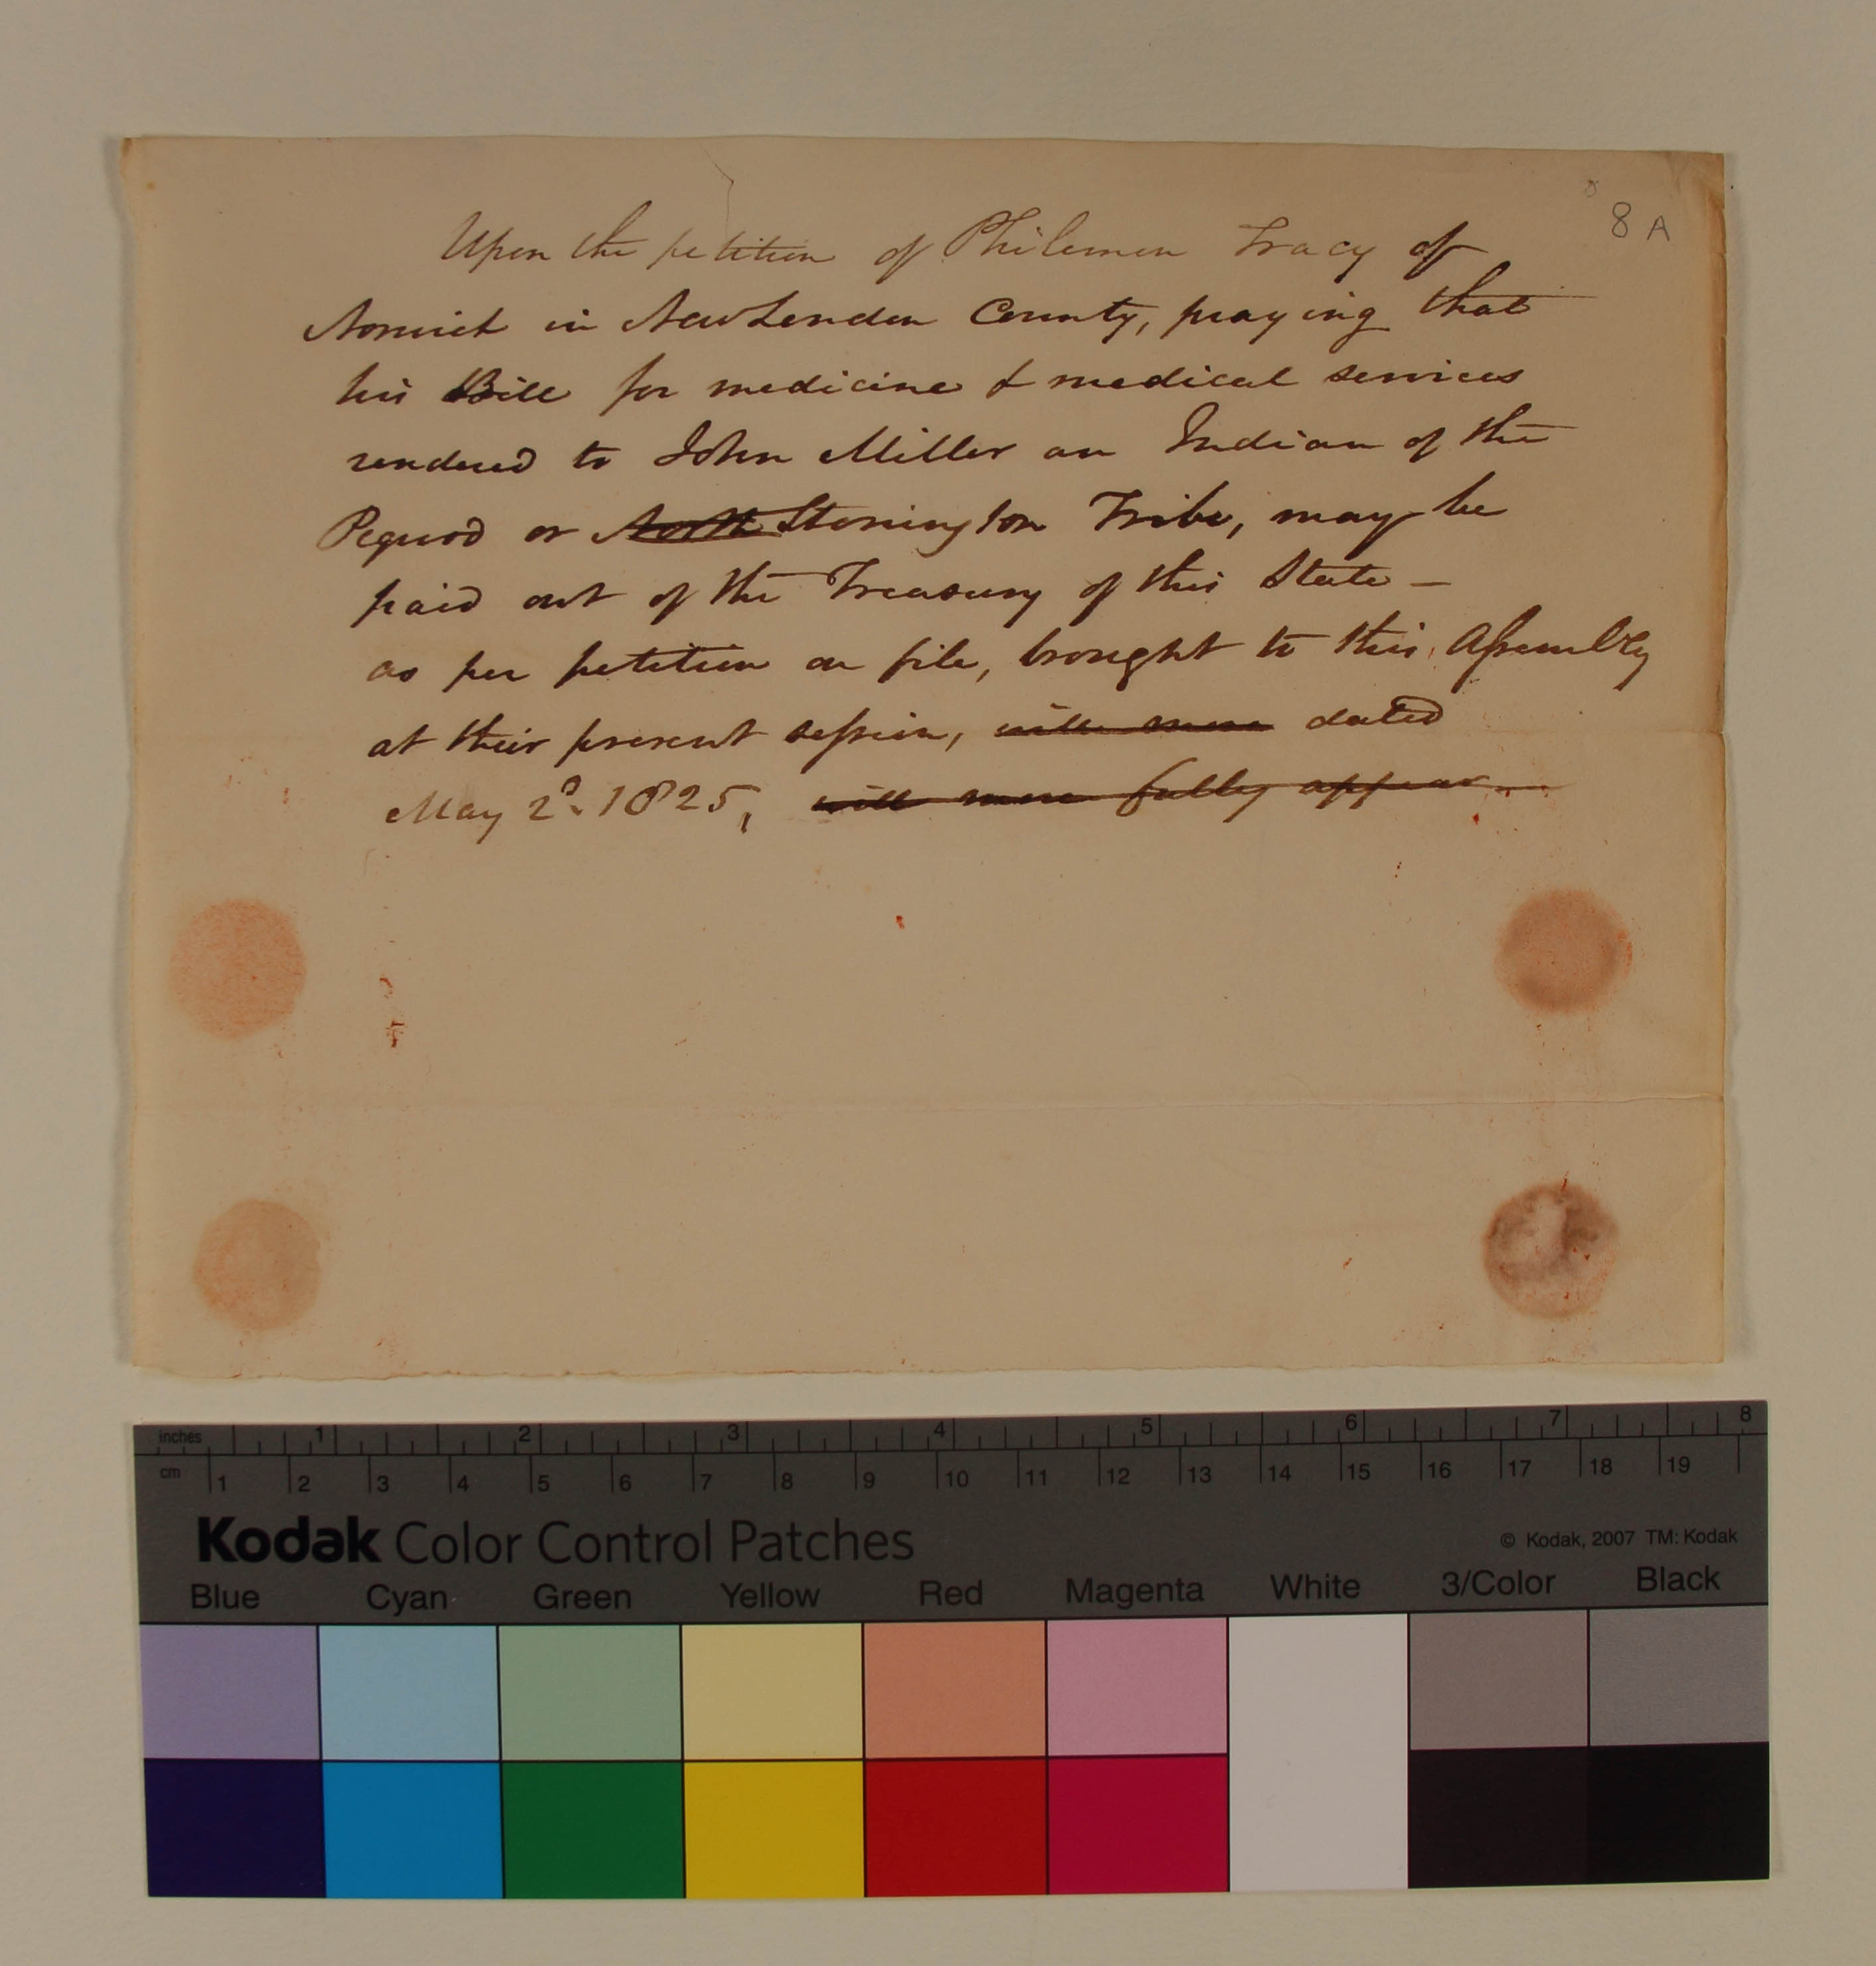 8 A
Upon the petition of Philemon Tracy of
Norwich in New London County, praying that
his Bill for medicine & medical services
rendered to John Miller an Indian of the
Pequod or North Stonington Tribe, may be
paid out of the Treasury of this State —
as per petition on file, brought to this Assembly
at their present session, will more dated
May 2d. 1825, will more fully appear
inches 1 2 3 4 5 6 7 8
cm 1 2 3 4 5 6 7 8 9 10 11 12 13 14 15 16 17 18 19
Kodak Color Control Patches
© Kodak, 2007 TM: Kodak
Blue Cyan Green Yellow Red Magenta White 3/Color Black